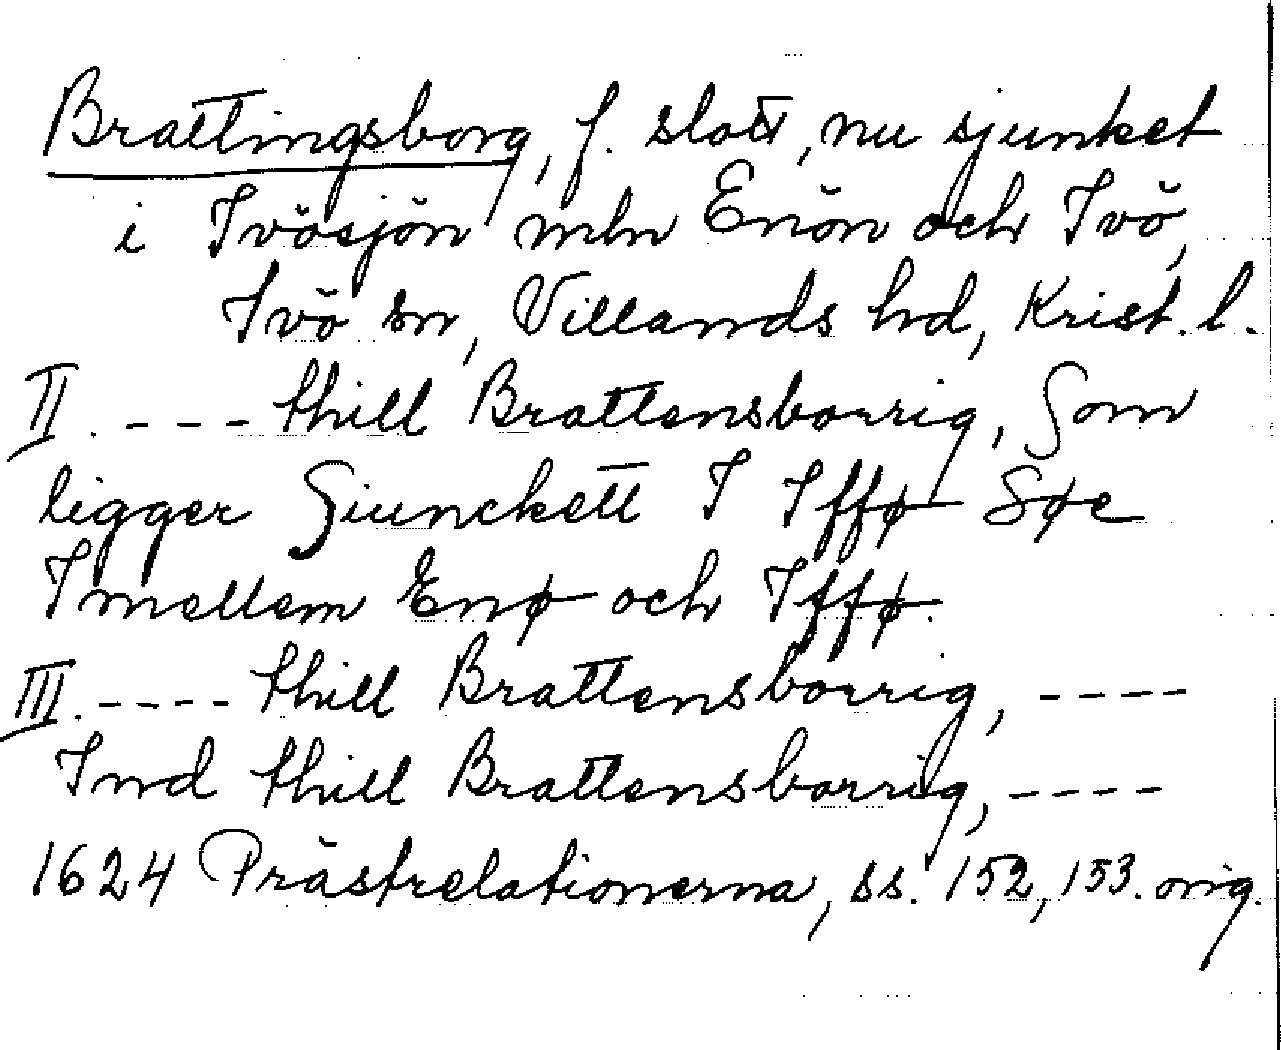 Brattingsborg, f. slott, nu sjunket
i Ivösjön mln Enön och Ivö,
Ivö sn, Villands hd, Krist. l.
II. ---- thill Brattensborrig, Som
ligger Siunckett I Iffø Søe
Imellem Enø och Iffø.
III. ---- thill Brattensborrig, ----
Ind thill Brattensborrig, ----
1624 Prästrelationerna, ss. 152, 153. orig.